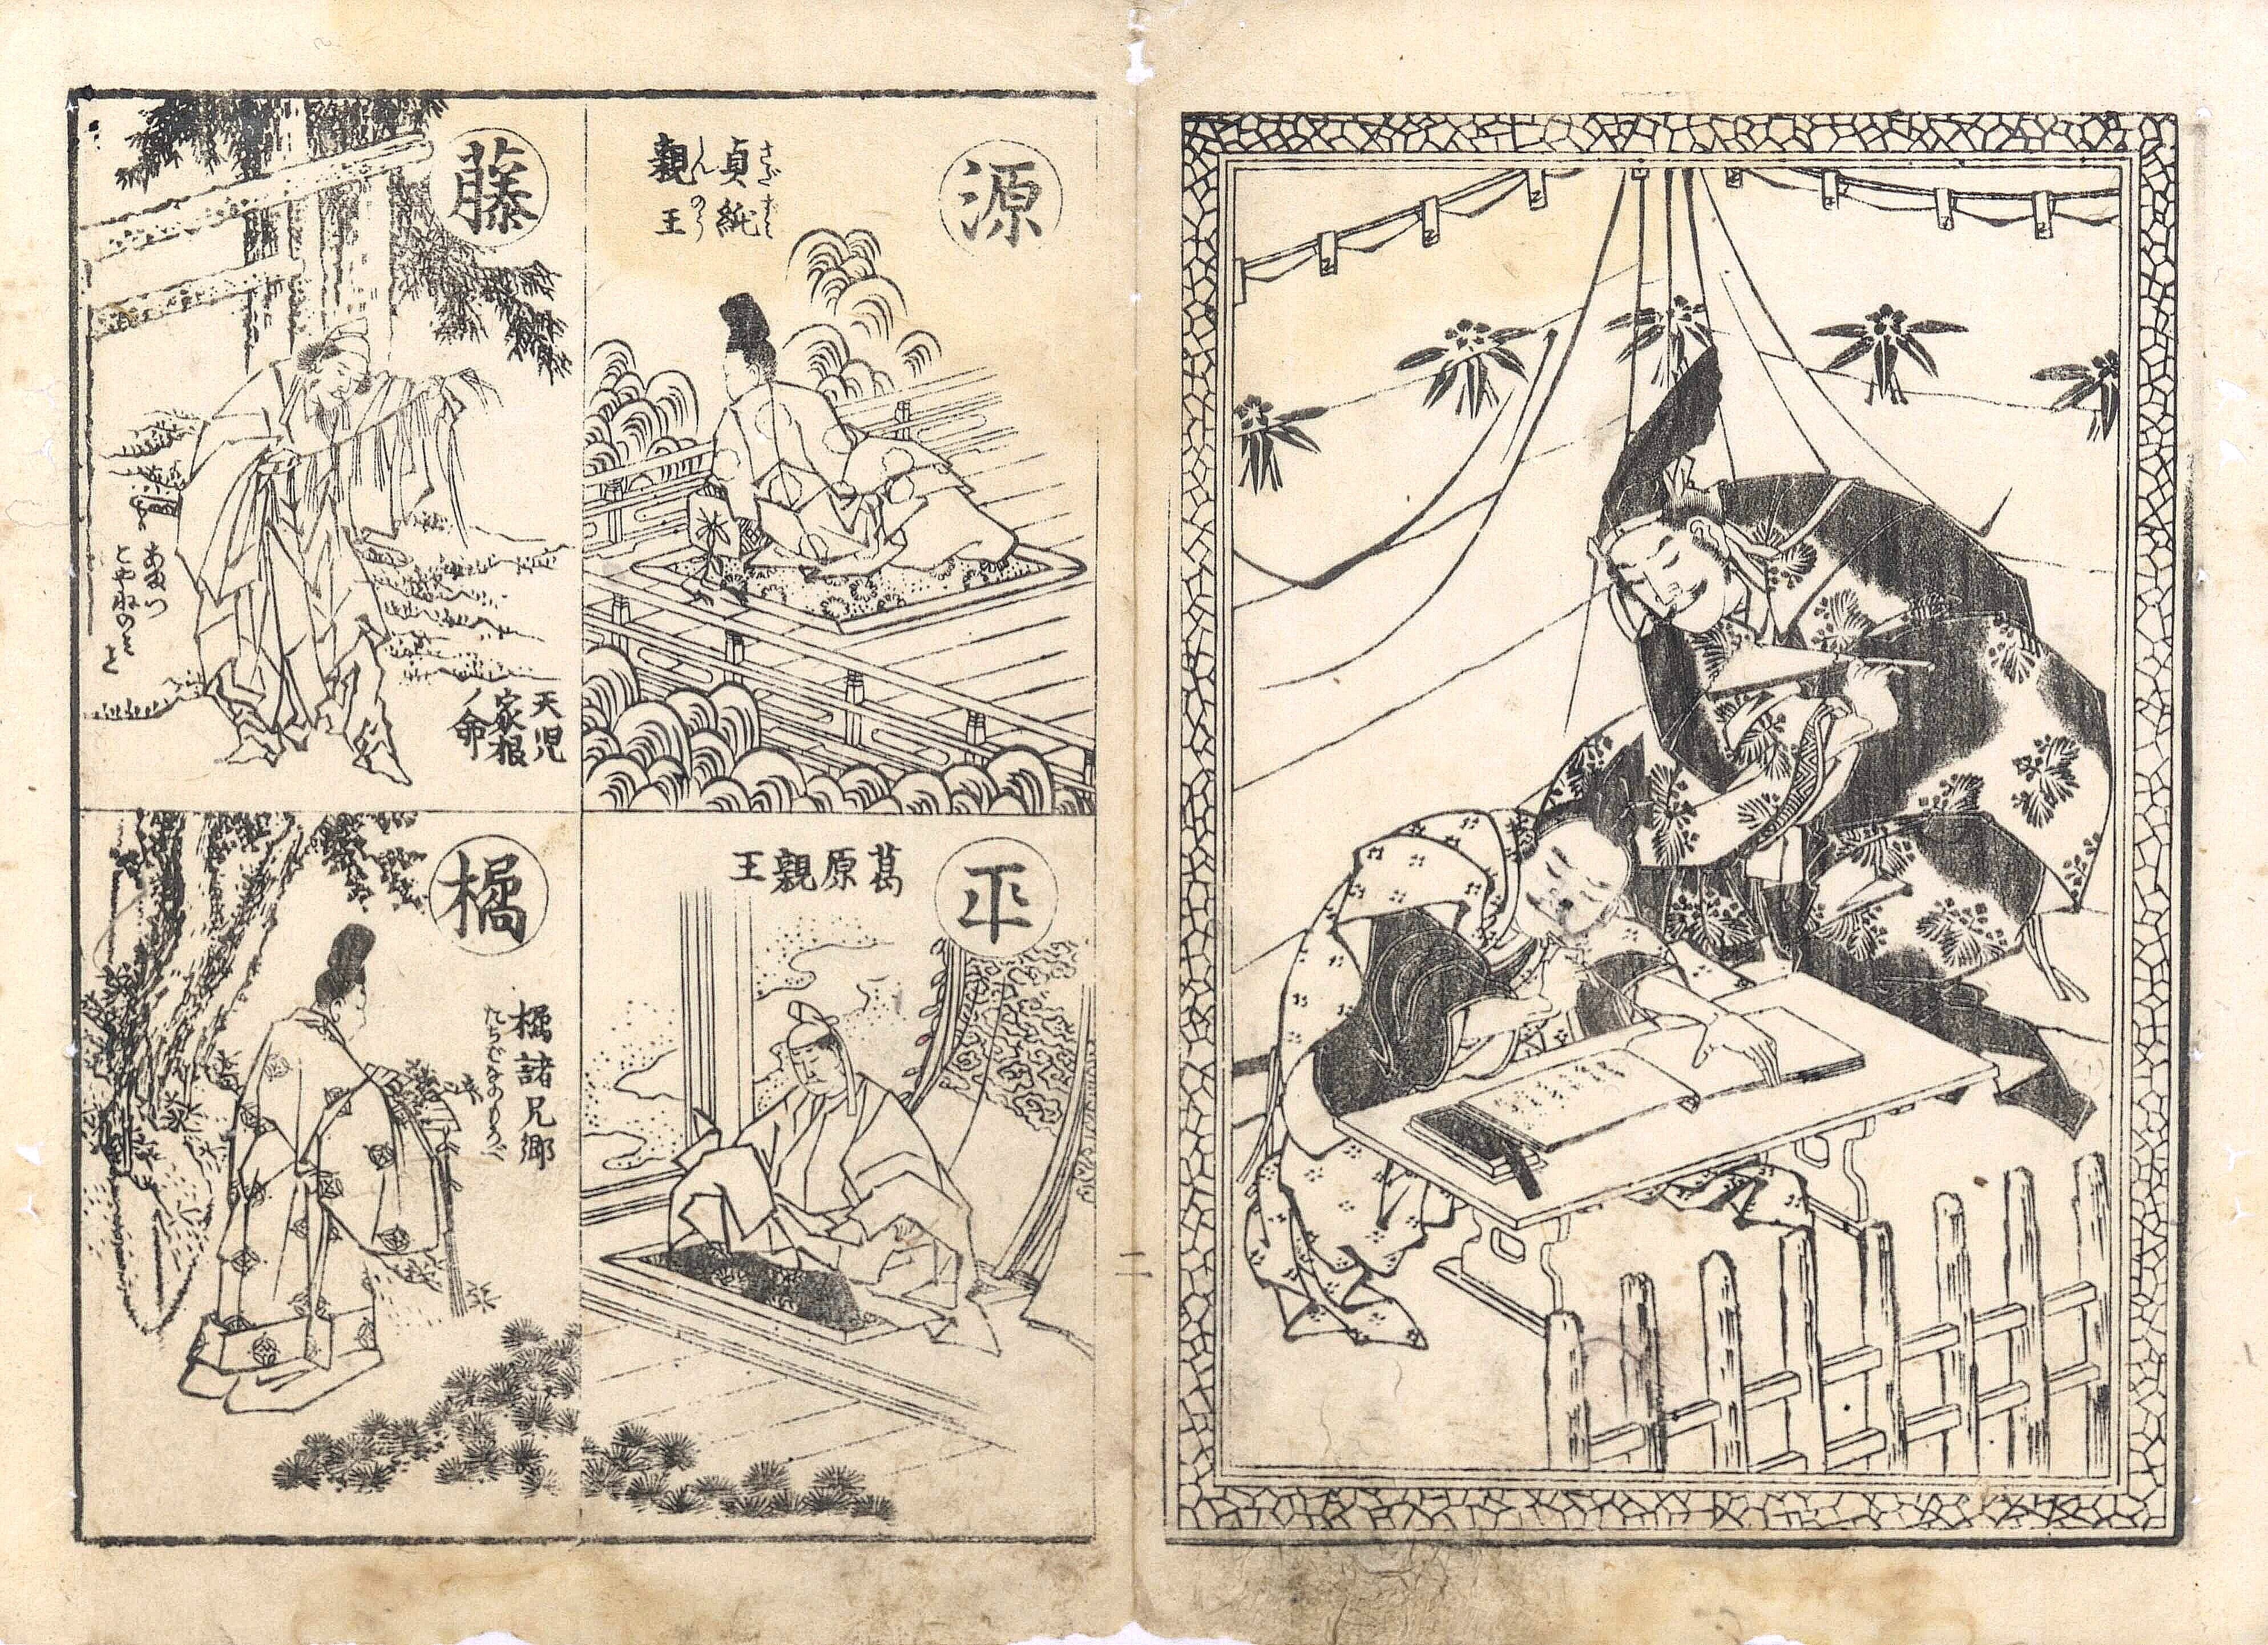 源
貞純
さだずみ
親王
しんのう
平
葛原親王
藤
天児
家根
ノ命
あまつ
こやねのみ
こと
橘
橘諸兄卿
たちばなのもろゑ
二